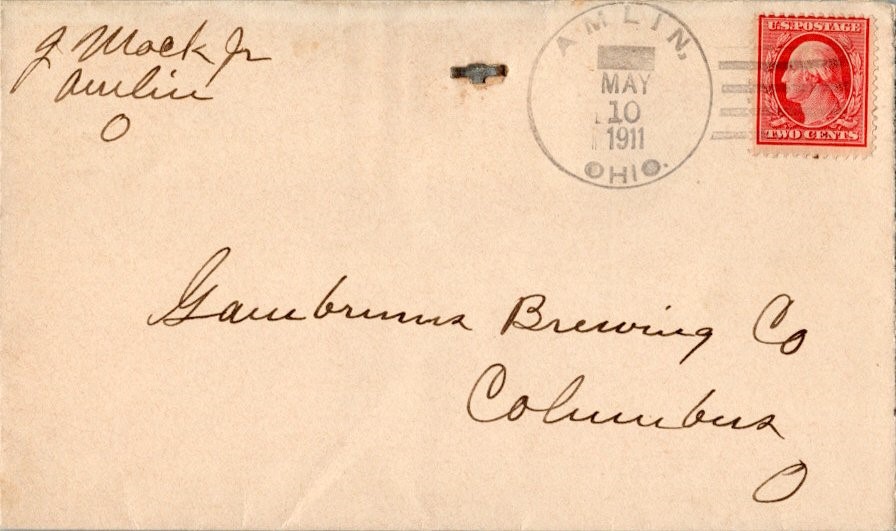 J Mock Jr
Amlin
O
AMLIN,
MAY
10
1911
OHIO.
U.S. POSTAGE
TWO CENTS
Gambrinus Brewing Co
Columbus
O